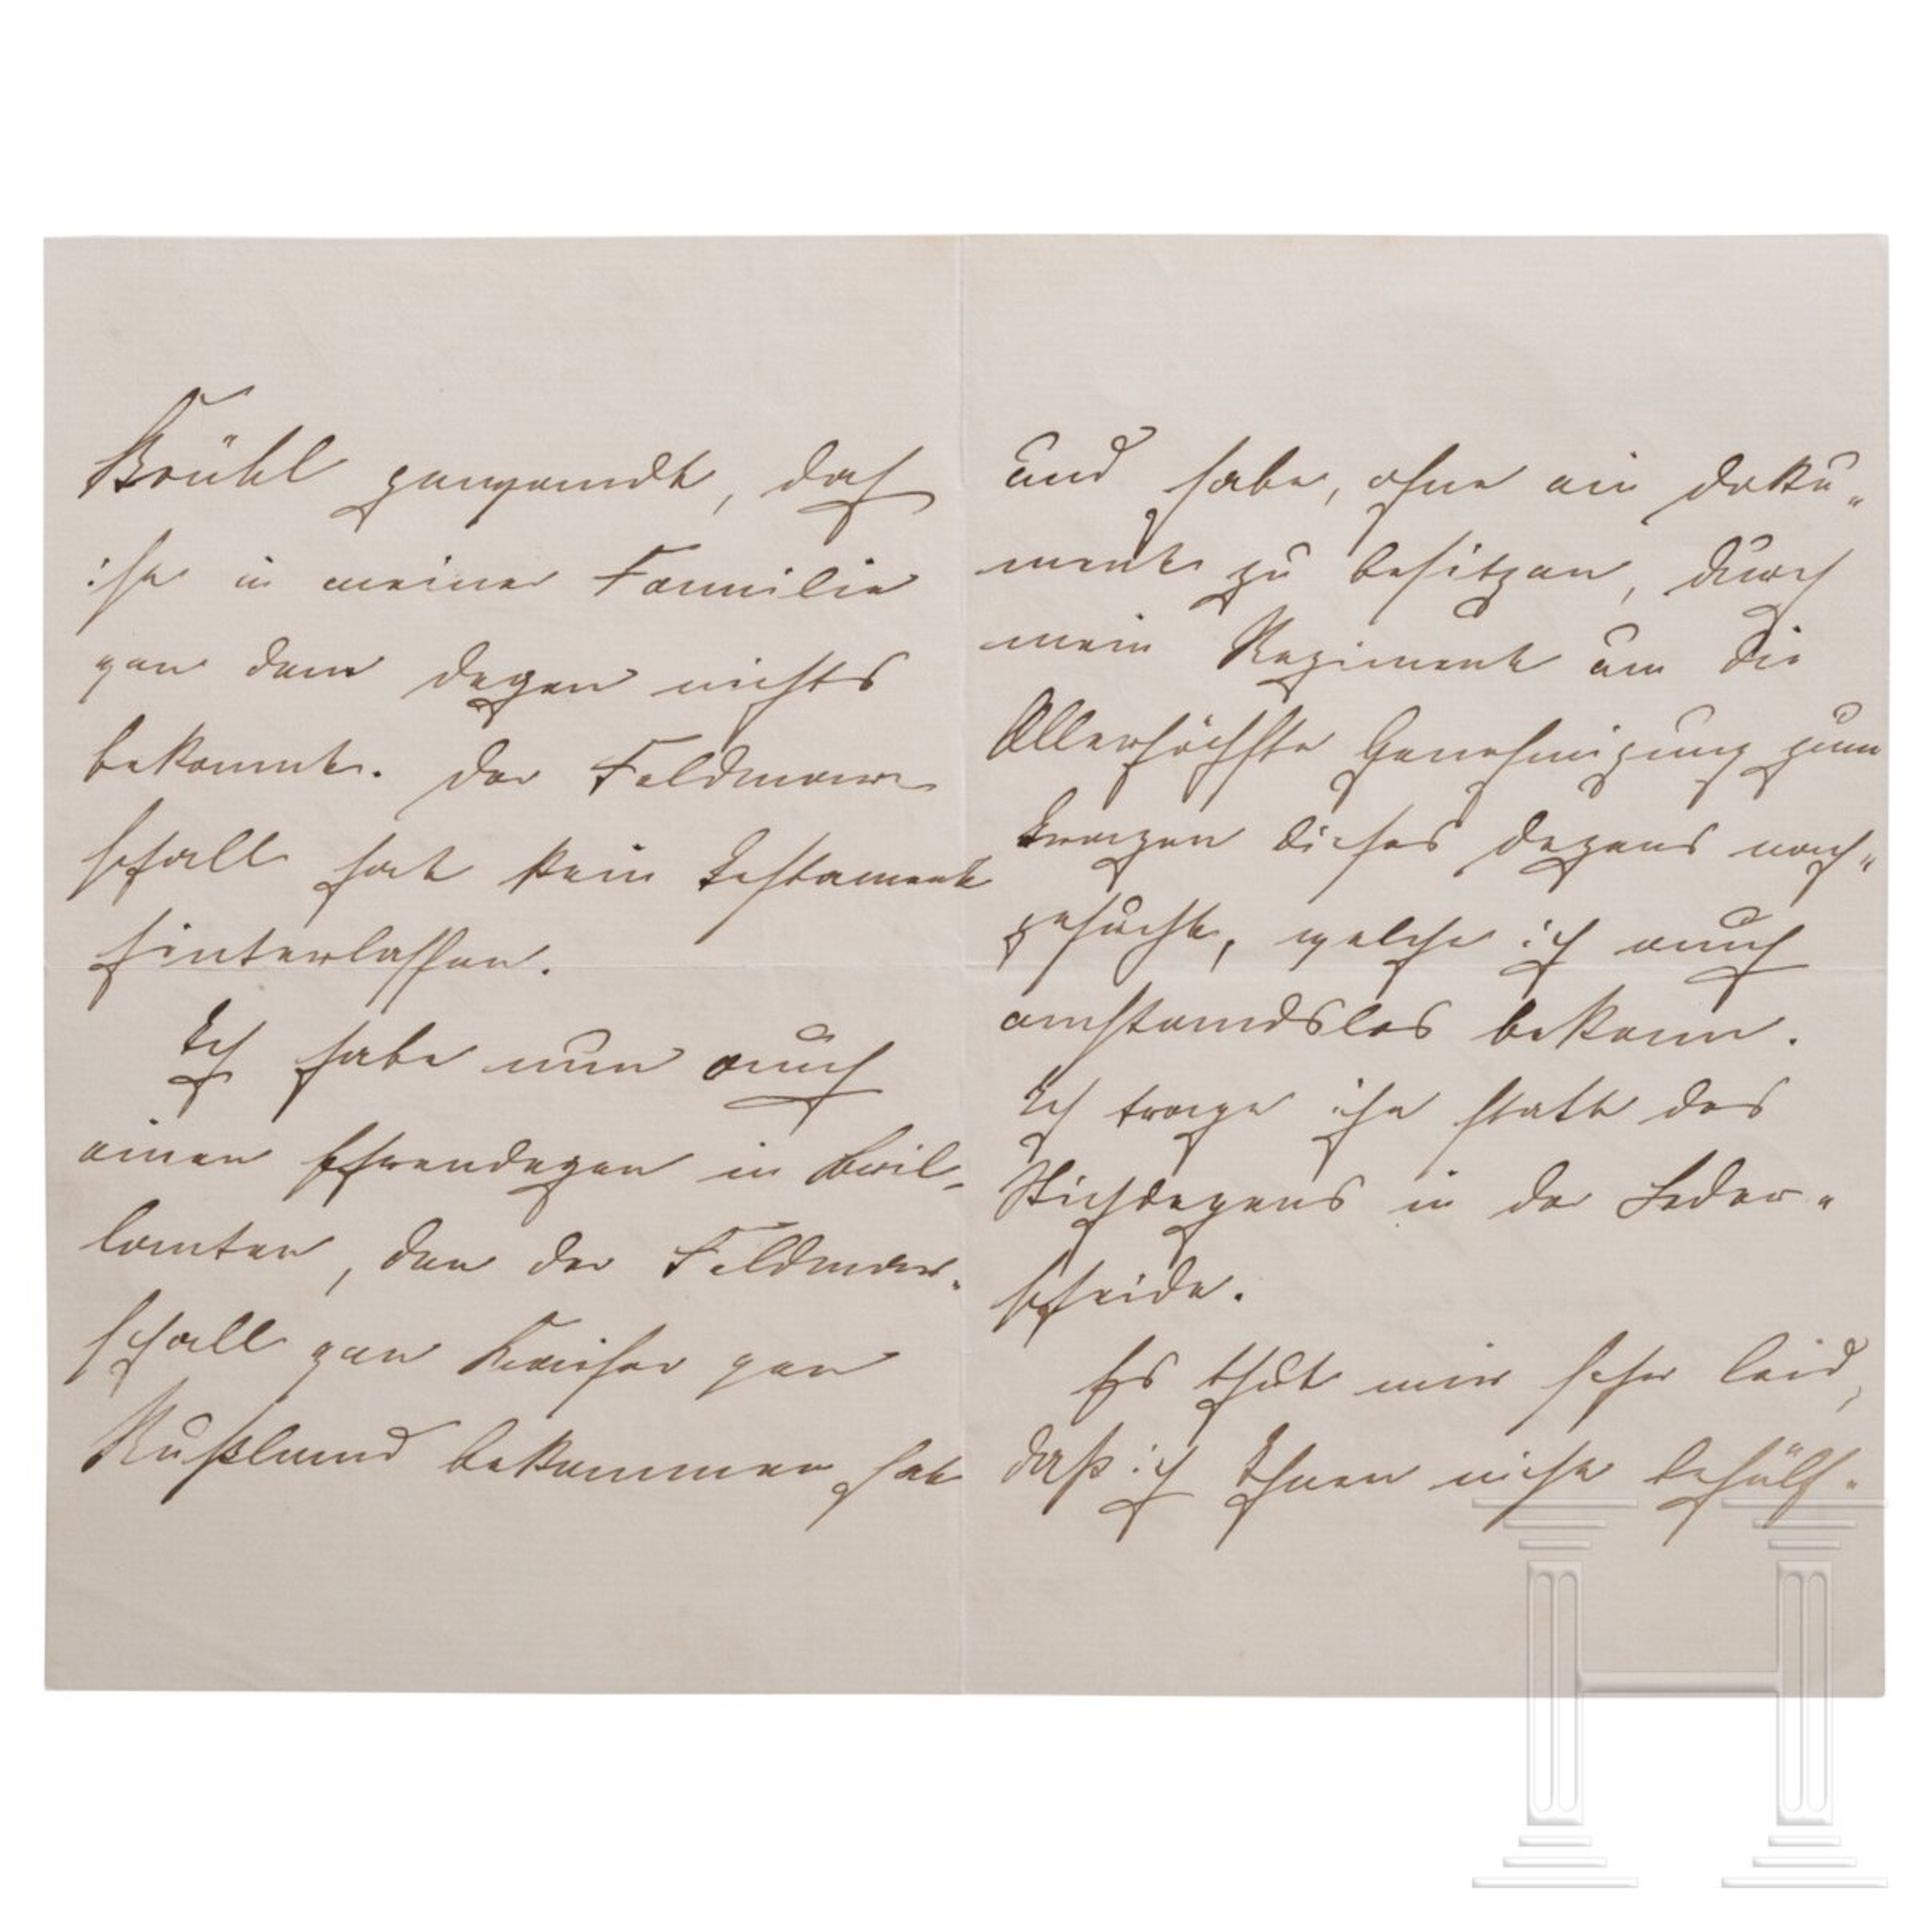 Brühl gewandt, doch
ist in meiner Familie
von dem Degen nichts
bekannt. Der Feldmar-
schall hat kein Testament
hinterlassen.
Ich habe nun auch
einen Ehrendegen in Bril-
lanten, den der Feldmar-
schall von Kaiser von
Rußland bekommen hat
und habe, ohne ein Doku-
ment zu besitzen, durch
mein Regiment um die
Allerhöchste Genehmigung zum
Tragen dieses Degens nach-
gesucht, welche ich auch
anstandslos bekam.
Ich trage ihn statt des
Stichdegens in der Leder-
scheide.
Es thut mir sehr leid,
daß ich Ihnen nicht behülf-